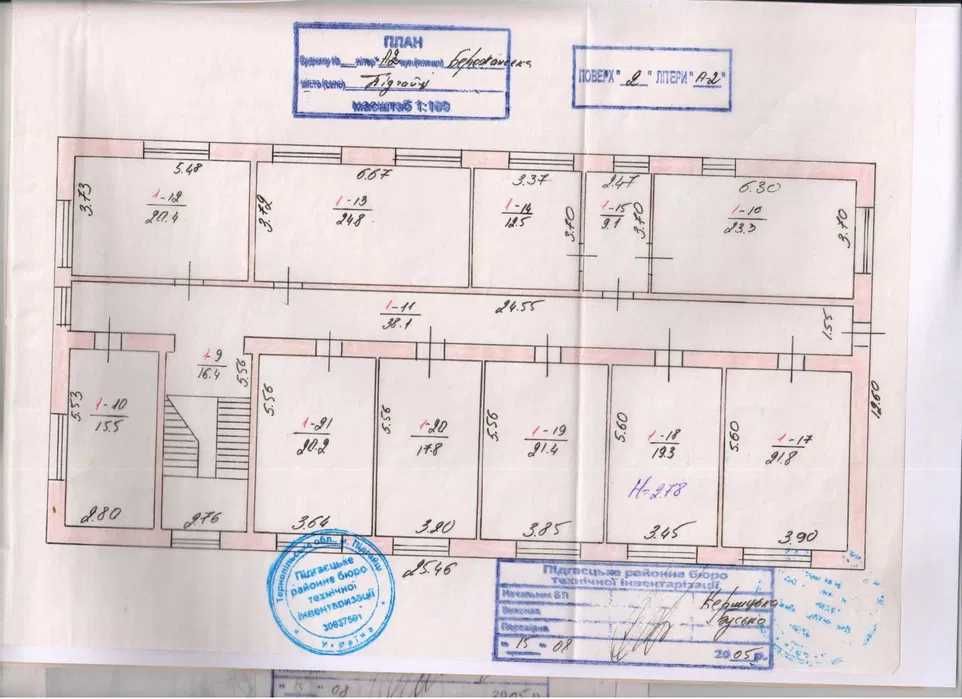 ПЛАН
літер "А2" вул. Бережанська
місто (село) Підгайці
масштаб 1:100
ПОВЕРХ " 2 " ЛІТЕРИ "А-2"
5.48
6.67
3.37
2.47
6.30
3.73
1-12
20.4
3.72
1-13
24.8
1-14
12.5
3.70
1-15
9.1
3.70
1-16
23.3
3.70
1-11
38.1
24.55
1.55
1-9
16.4
5.56
5.53
1-10
15.5
5.56
1-21
20.2
5.56
1-20
17.8
5.56
1-19
21.4
5.60
1-18
19.3
5.60
1-17
21.8
12.60
H=2.78
2.80
2.76
3.64
3.20
3.85
3.45
3.90
25.46
Тернопільська обл., м. Підгайці
Підгаєцьке
районне бюро
технічної
інвентаризації
30837591
Україна
Підгаєцьке районне бюро
технічної інвентаризації
Начальник БТІ
Виконав
Перевірив
" 15 " 08 2005 р.
" 15 " 08 2005 р.